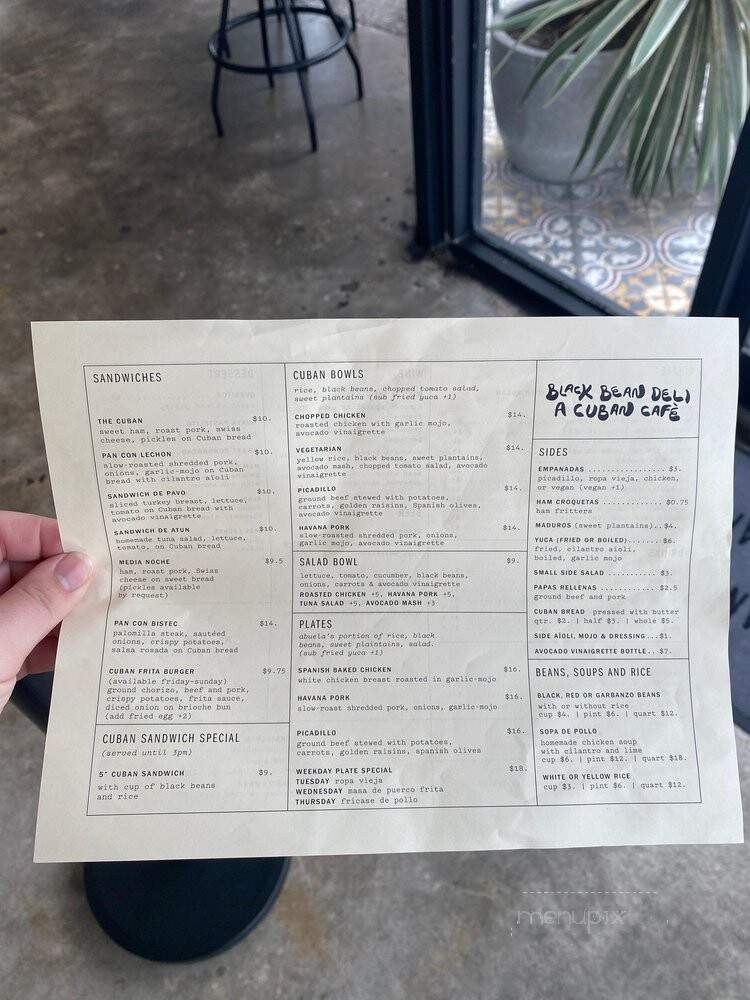 SANDWICHES
THE CUBAN $10.
sweet ham, roast pork, swiss
cheese, pickles on Cuban bread
PAN CON LECHON $10.
slow-roasted shredded pork,
onions, garlic-mojo on Cuban
bread with cilantro aïoli
SANDWICH DE PAVO $10.
sliced turkey breast, lettuce,
tomato on Cuban bread with
avocado vinaigrette
SANDWICH DE ATUN $10.
homemade tuna salad, lettuce,
tomato, on Cuban bread
MEDIA NOCHE $9.5
ham, roast pork, Swiss
cheese on sweet bread
(pickles available
by request)
PAN CON BISTEC $14.
palomilla steak, sautéed
onions, crispy potatoes,
salsa rosada on Cuban bread
CUBAN FRITA BURGER $9.75
(available friday-sunday)
ground chorizo, beef and pork,
crispy potatoes, frita sauce,
diced onion on brioche bun
(add fried egg +2)
CUBAN SANDWICH SPECIAL
(served until 3pm)
5" CUBAN SANDWICH $9.
with cup of black beans
and rice
CUBAN BOWLS
rice, black beans, chopped tomato salad,
sweet plantains (sub fried yuca +1)
CHOPPED CHICKEN $14.
roasted chicken with garlic mojo,
avocado vinaigrette
VEGETARIAN $14.
yellow rice, black beans, sweet plantains,
avocado mash, chopped tomato salad, avocado
vinaigrette
PICADILLO $14.
ground beef stewed with potatoes,
carrots, golden raisins, Spanish olives,
avocado vinaigrette
HAVANA PORK $14.
slow-roasted shredded pork, onions,
garlic mojo, avocado vinaigrette
SALAD BOWL $9.
lettuce, tomato, cucumber, black beans,
onions, carrots & avocado vinaigrette
ROASTED CHICKEN +5, HAVANA PORK +5,
TUNA SALAD +5, AVOCADO MASH +3
PLATES
abuela's portion of rice, black
beans, sweet plaintains, salad.
(sub fried yuca +1)
SPANISH BAKED CHICKEN $16.
white chicken breast roasted in garlic-mojo
HAVANA PORK $16.
slow-roast shredded pork, onions, garlic-mojo
PICADILLO $16.
ground beef stewed with potatoes,
carrots, golden raisins, spanish olives
WEEKDAY PLATE SPECIAL $18.
TUESDAY ropa vieja
WEDNESDAY masa de puerco frita
THURSDAY fricase de pollo
BLACK BEAN DELI
A CUBAN CAFÉ
SIDES
EMPANADAS ................ $3.
picadillo, ropa vieja, chicken,
or vegan (vegan +1)
HAM CROQUETAS ............ $0.75
ham fritters
MADUROS (sweet plantains).. $4.
YUCA (FRIED OR BOILED)....... $6.
fried, cilantro aioli,
boiled, garlic mojo
SMALL SIDE SALAD .......... $3.
PAPAS RELLENAS ............ $2.5
ground beef and pork
CUBAN BREAD pressed with butter
qtr. $2. | half $3. | whole $5.
SIDE AÏOLI, MOJO & DRESSING .. $1.
AVOCADO VINAIGRETTE BOTTLE.. $7.
BEANS, SOUPS AND RICE
BLACK, RED OR GARBANZO BEANS
with or without rice
cup $4. | pint $6. | quart $12.
SOPA DE POLLO
homemade chicken soup
with cilantro and lime
cup $6. | pint $12. | quart $18.
WHITE OR YELLOW RICE
cup $3. | pint $6. | quart $12.
menupix